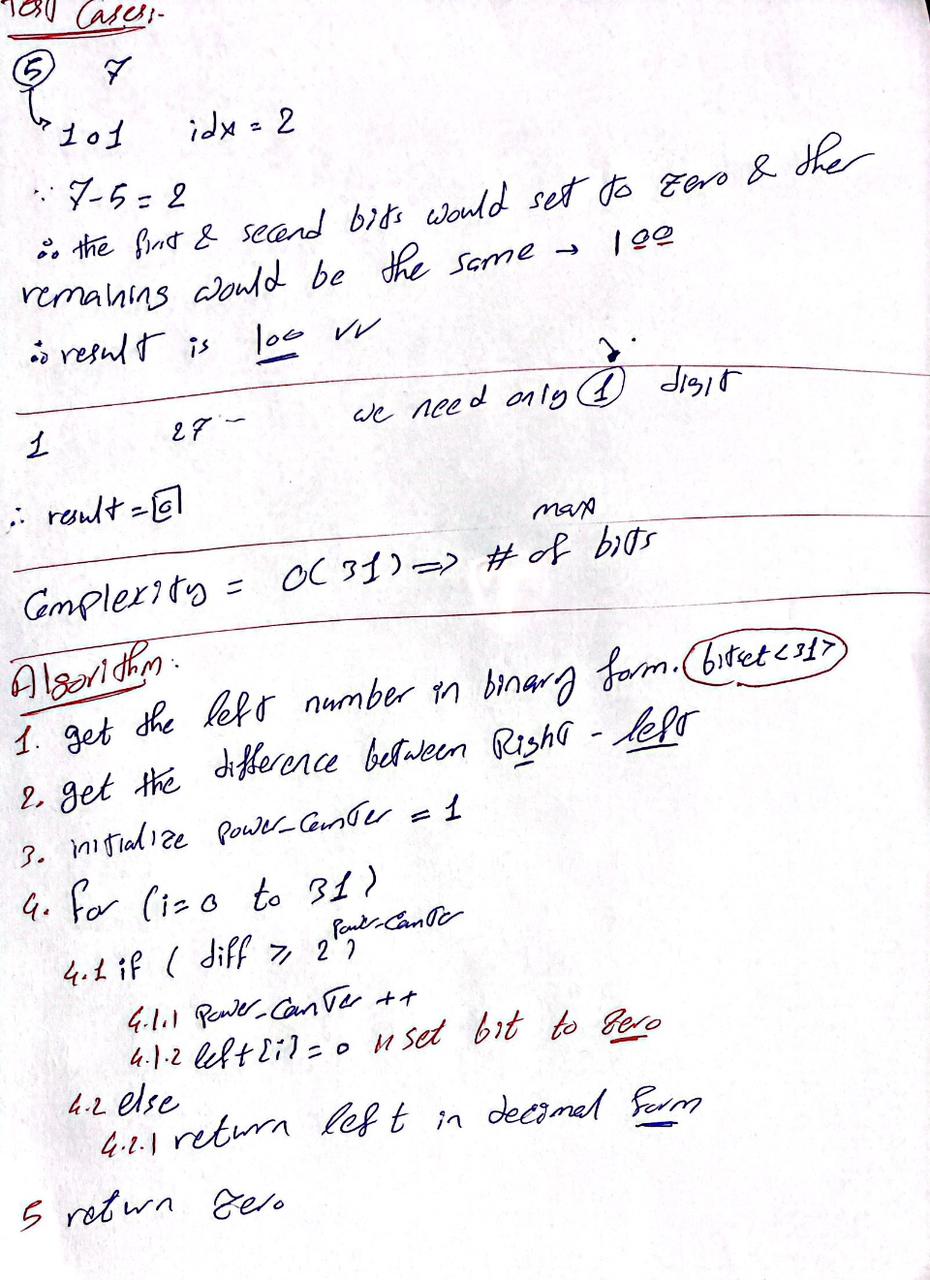 Test Cases:-
5 7
101 idx = 2
∵ 7-5 = 2
∴ the first & second bits would set to zero & ther
remaining would be the same → 100
∴ result is 100 ✓✓
1 27 - we need only 1 digit
∴ result = 0
Complexity = O(31) => # of max bits
Algorithm:
1. get the left number in binary form. bitset<31>
2. get the difference between Right - left
3. initialize power_counter = 1
4. for (i=0 to 31)
4.1 if ( diff >= 2^power-counter )
4.1.1 power_counter ++
4.1.2 left[i] = 0 // set bit to zero
4.2 else
4.2.1 return left in decimal form
5 return zero